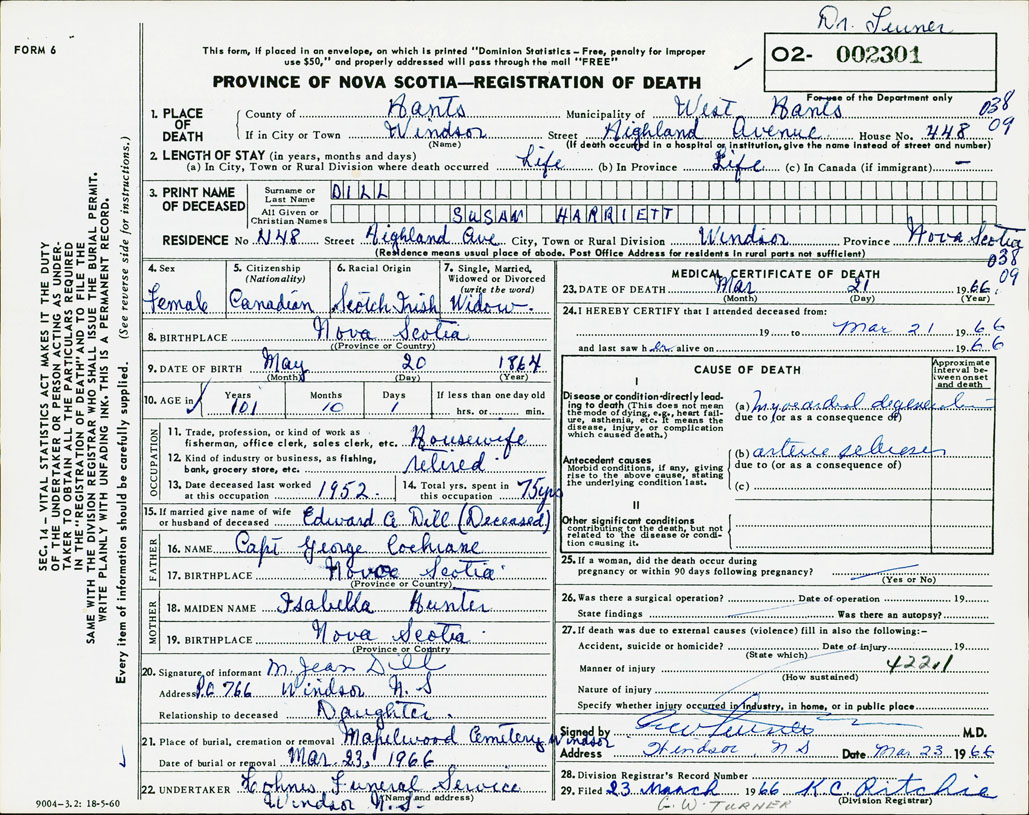 Dr. Turner
FORM 6
This form, if placed in an envelope, on which is printed "Dominion Statistics – Free, penalty for improper
use $50," and properly addressed will pass through the mail "FREE"
02- 002301
PROVINCE OF NOVA SCOTIA—REGISTRATION OF DEATH
For use of the Department only
1. PLACE OF DEATH County of Hants Municipality of West Hants 038
If in City or Town Windsor Street Highland Avenue House No. 448 09
(Name) (If death occurred in a hospital or institution, give the name instead of street and number)
2. LENGTH OF STAY (in years, months and days)
(a) In City, Town or Rural Division where death occurred Life (b) In Province Life (c) In Canada (if immigrant) –
3. PRINT NAME OF DECEASED Surname or Last Name DILL
All Given or Christian Names SUSAN HARRIETT
RESIDENCE No 448 Street Highland Ave City, Town or Rural Division Windsor Province Nova Scotia
(Residence means usual place of abode. Post Office Address for residents in rural parts not sufficient)
038
09
4. Sex Female
5. Citizenship (Nationality) Canadian
6. Racial Origin Scotch Irish
7. Single, Married, Widowed or Divorced (write the word) Widow
8. BIRTHPLACE Nova Scotia
(Province or Country)
9. DATE OF BIRTH May 20 1864
(Month) (Day) (Year)
10. AGE in Years 101 Months 10 Days 1 If less than one day old hrs. or min.
OCCUPATION
11. Trade, profession, or kind of work as
fisherman, office clerk, sales clerk, etc. Housewife
12. Kind of industry or business, as fishing,
bank, grocery store, etc. retired
13. Date deceased last worked
at this occupation 1952
14. Total yrs. spent in
this occupation 75 yrs
15. If married give name of wife
or husband of deceased Edward A Dill (Deceased)
FATHER
16. NAME Capt George Cochrane
17. BIRTHPLACE Nova Scotia
(Province or Country)
MOTHER
18. MAIDEN NAME Isabella Hunter
19. BIRTHPLACE Nova Scotia
(Province or Country)
20. Signature of informant M. Jean Dill
Address P.O 766 Windsor N. S
Relationship to deceased Daughter.
21. Place of burial, cremation or removal Mapelwood Cemetery Windsor
Date of burial or removal Mar. 23, 1966
22. UNDERTAKER Funeral Service
Windsor N.S.
(Name and address)
MEDICAL CERTIFICATE OF DEATH
23. DATE OF DEATH Mar 21 1966
(Month) (Day) (Year)
24. I HEREBY CERTIFY that I attended deceased from:
19 to Mar 21 1966
and last saw her alive on 1966
CAUSE OF DEATH
Approximate interval between onset and death
I
Disease or condition directly leading
to death (This does not mean
the mode of dying, e.g., heart failure,
asthenia, etc. It means the
disease, injury, or complication
which caused death.)
(a) myocardial degeneration
due to (or as a consequence of)
Antecedent causes
Morbid conditions, if any, giving
rise to the above cause, stating
the underlying condition last.
(b) arterio sclerosis
due to (or as a consequence of)
(c)
II
Other significant conditions
contributing to the death, but not
related to the disease or condition
causing it.
25. If a woman, did the death occur during
pregnancy or within 90 days following pregnancy?
(Yes or No)
26. Was there a surgical operation? Date of operation 19
State findings Was there an autopsy?
27. If death was due to external causes (violence) fill in also the following:–
Accident, suicide or homicide? Date of injury 19
(State which)
Manner of injury 422.1
(How sustained)
Nature of injury
Specify whether injury occurred in Industry, in home, or in public place
Signed by G W Turner M.D.
Address Windsor, N S Date Mar 23 1966
28. Division Registrar's Record Number
29. Filed 23 March 1966 K.C. Ritchie
(Division Registrar)
G. W. TURNER
9004-3.2: 18-5-60
SEC. 14 – VITAL STATISTICS ACT MAKES IT THE DUTY
OF THE UNDERTAKER OR PERSON ACTING AS UNDERTAKER
TO OBTAIN ALL THE PARTICULARS REQUIRED
IN THE "REGISTRATION OF DEATH" AND TO FILE THE
SAME WITH THE DIVISION REGISTRAR WHO SHALL ISSUE THE BURIAL PERMIT.
WRITE PLAINLY WITH UNFADING INK. THIS IS A PERMANENT RECORD.
Every item of information should be carefully supplied. (See reverse side for instructions.)